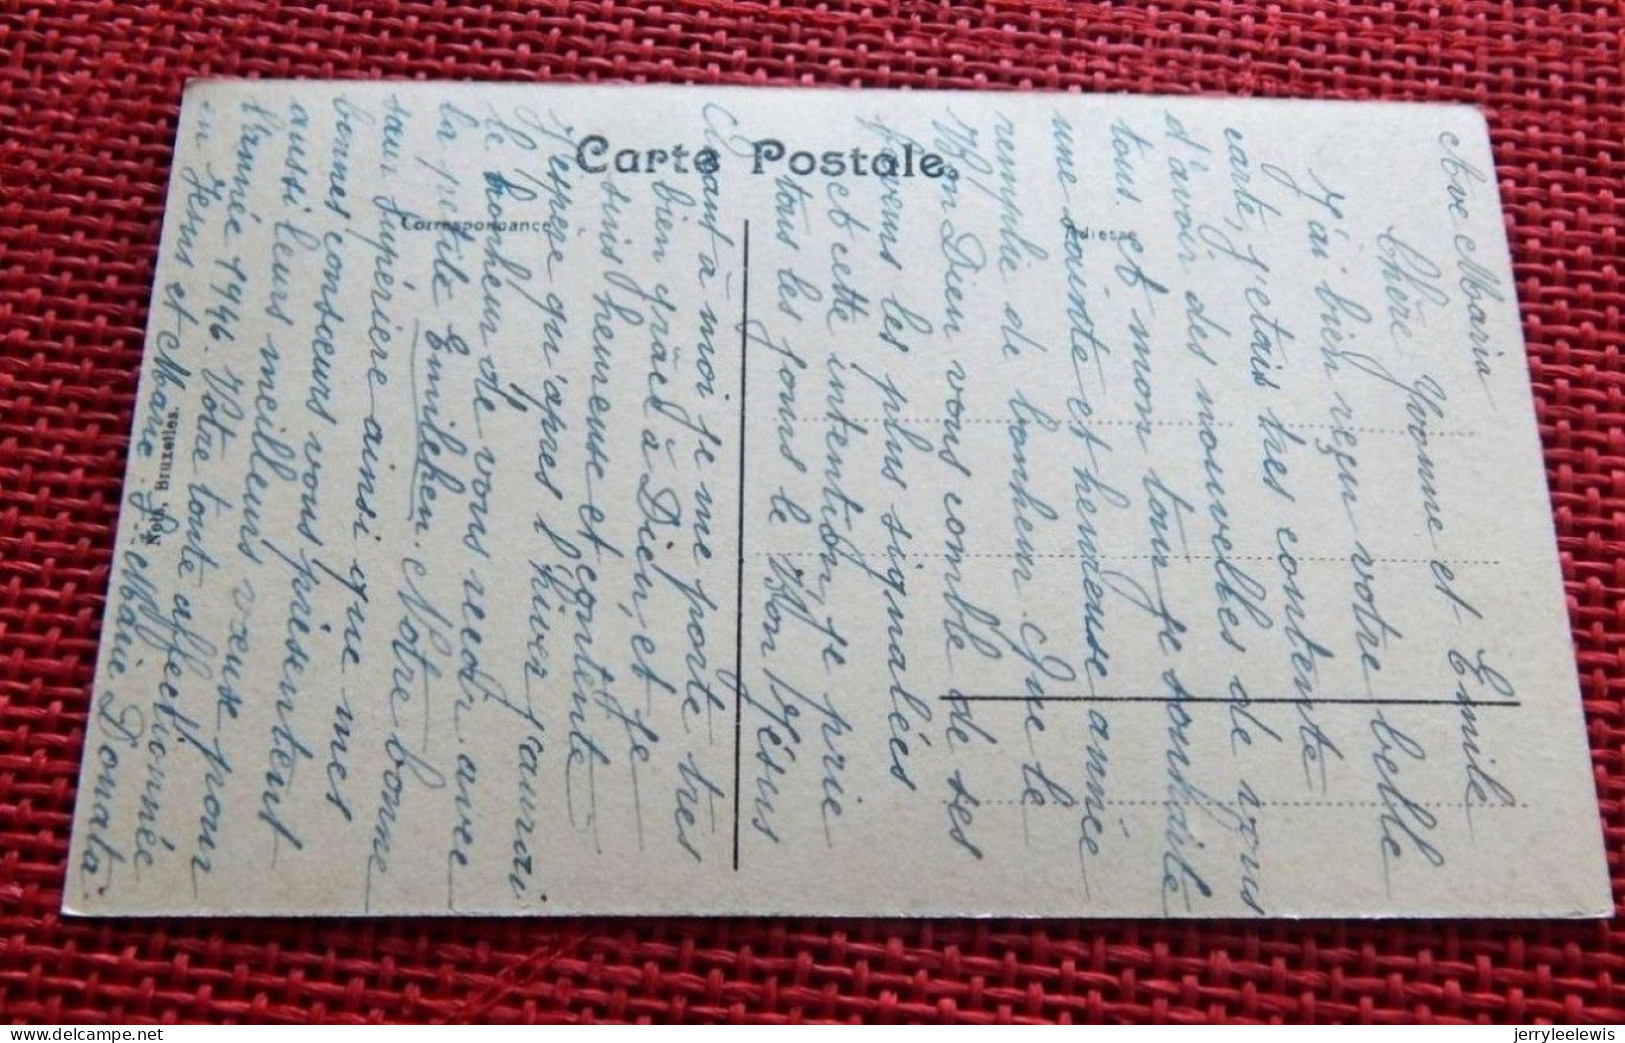 Carte Postale.
Correspondance
Adresse
Nels, Bruxelles.
Ave Maria
Chère Yvonne et Emile
J'ai bien reçu votre belle
carte, j'etais tres contente
d'avoir des nouvelles de vous
tous. et mon tour je souhaite
une sainte et heureuse année
remplie de bonheur. Que le
Bon Dieu vous comble de ses
faveurs les plus signalées
et cette intention, je prie
tous les jours le Bon Jésus
Quant à moi je me porte tres
bien grâce à Dieu, et je
suis heureuse et contente
J'espère qu'apres l'hiver j'aurai
le bonheur de vous revoir avec
la petite Emileken. Notre bonne
sœur supérieure ainsi que mes
bonnes consœurs vous présentent
aussi leurs meilleurs vœux pour
l'année 1946. Votre toute affectionnée
en Jesus et Marie Sr Marie Donata.
jerryleelewis
www.delcampe.net